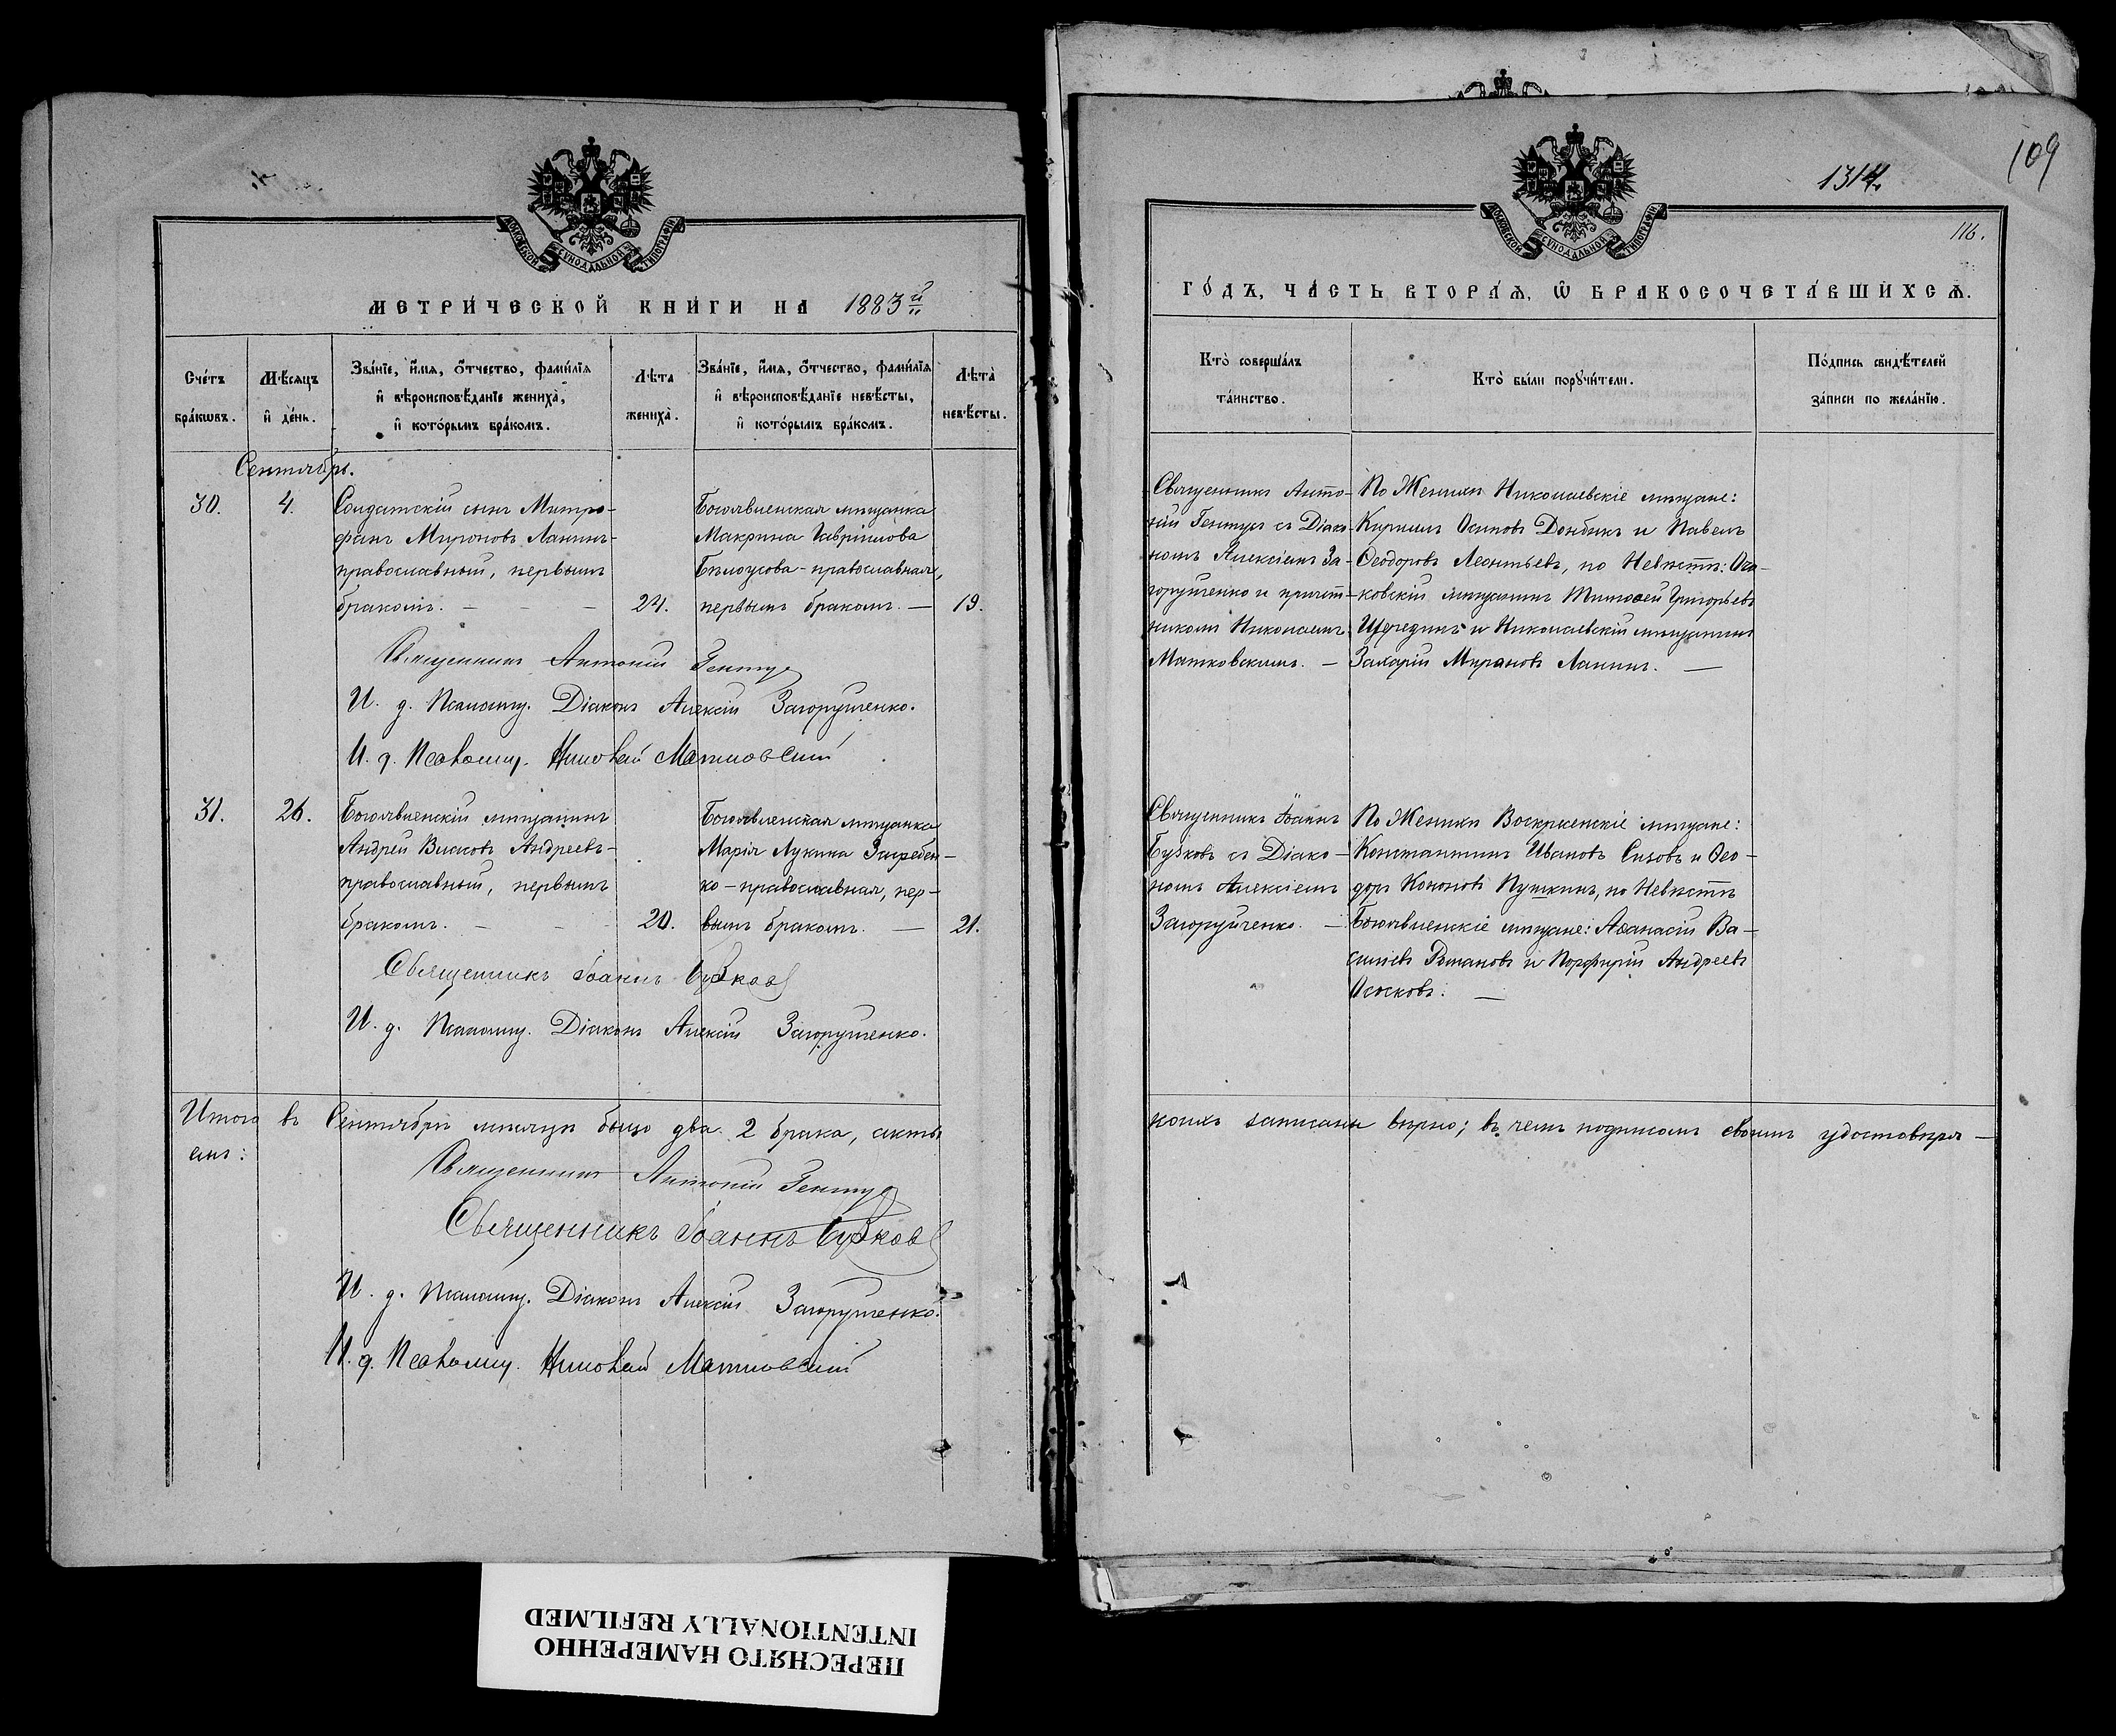 МОСКОВСКОЙ СУНОДАЛЬНОЙ ТИПОГРАФІИ
МЕТРИ́ЧЕСКОЙ КНИ́ГИ НА 1883й
Сче́тъ бра́кωвъ.
Мѣ́сяцъ и҆ де́нь.
Зва́нїе, и҆́мя, ѻ҆́тчество, фами́лїя
и҆ вѣроисповѣ́данїе жениха̀,
и҆ кото́рымъ бра́комъ.
Лѣ́та жениха̀.
Зва́нїе, и҆́мя, ѻ҆́тчество, фами́лїя
и҆ вѣроисповѣ́данїе невѣ́сты,
и҆ кото́рымъ бра́комъ.
Лѣ́та невѣ́сты.
Сентябрь.
30.
4.
Солдатскій сынъ Митро-
фанъ Мироновъ Лапинъ-
православный, первымъ
бракомъ. — — —
24.
Богоявленская мѣщанка
Макрина Гавріилова
Бѣлоусова - православная,
первымъ бракомъ. —
19.
Священникъ Антоній
И. д. Псаломщ. Діаконъ Алексій Загоруйченко.
И. д. Псаломщ. Николай Матковскій
31.
26.
Богоявленскій мѣщанинъ
Андрей Власовъ Андреевъ-
православный, первымъ
бракомъ. — — —
20.
Богоявленская мѣщанка
Марія Лукина Загребен-
ко - православная, пер-
вымъ бракомъ. —
21.
Священникъ Іоаннъ Бузковъ
И. д. Псаломщ. Діаконъ Алексій Загоруйченко.
Итого въ Сентябрѣ мѣсяцѣ было два 2 брака, акты
емъ:
Священникъ Антоній
Священникъ Іоаннъ Бузковъ
И. д. Псаломщ. Діаконъ Алексій Загоруйченко.
И. д. Псаломщ. Николай Матковскій
109
1314.
116.
МОСКОВСКОЙ СУНОДАЛЬНОЙ ТИПОГРАФІИ
ГО́ДЪ, ЧА́СТЬ ВТОРА́Я, Ѽ БРАКОСОЧЕТА́ВШИХСЯ.
Кто̀ соверша́лъ
та́инство.
Кто̀ бы́ли поручи́тели.
По́дпись свидѣ́телей
за́писи по жела́нїю.
Священникъ Анто-
ній съ Діако-
номъ Алексіемъ За-
горуйченко и причет-
никомъ Николаемъ
Матковскимъ. —
По Женихѣ Николаевскіе мѣщане:
Кириллъ Осиповъ и Павелъ
Ѳеодоровъ Леонтьевъ, по Невѣстѣ: Оча-
ковскій мѣщанинъ Тимоѳей Григорьевъ
и Николаевскій мѣщанинъ
Захарій Мироновъ Лапинъ. —
Священникъ Іоаннъ
Бузковъ съ Діако-
номъ Алексіемъ
Загоруйченко. —
По Женихѣ Воскресенскіе мѣщане:
Константинъ Ивановъ Сизовъ и Ѳео-
доръ Кононовъ Пушкинъ, по Невѣстѣ
Богоявленскіе мѣщане: Аѳанасій Ва-
сильевъ Романовъ и Порфирій Андреевъ
Ососковъ. —
коихъ записаны вѣрно; въ чемъ подписомъ своимъ удостовѣря-
ПЕРЕСНЯТО НАМЕРЕННО
INTENTIONALLY REFILMED